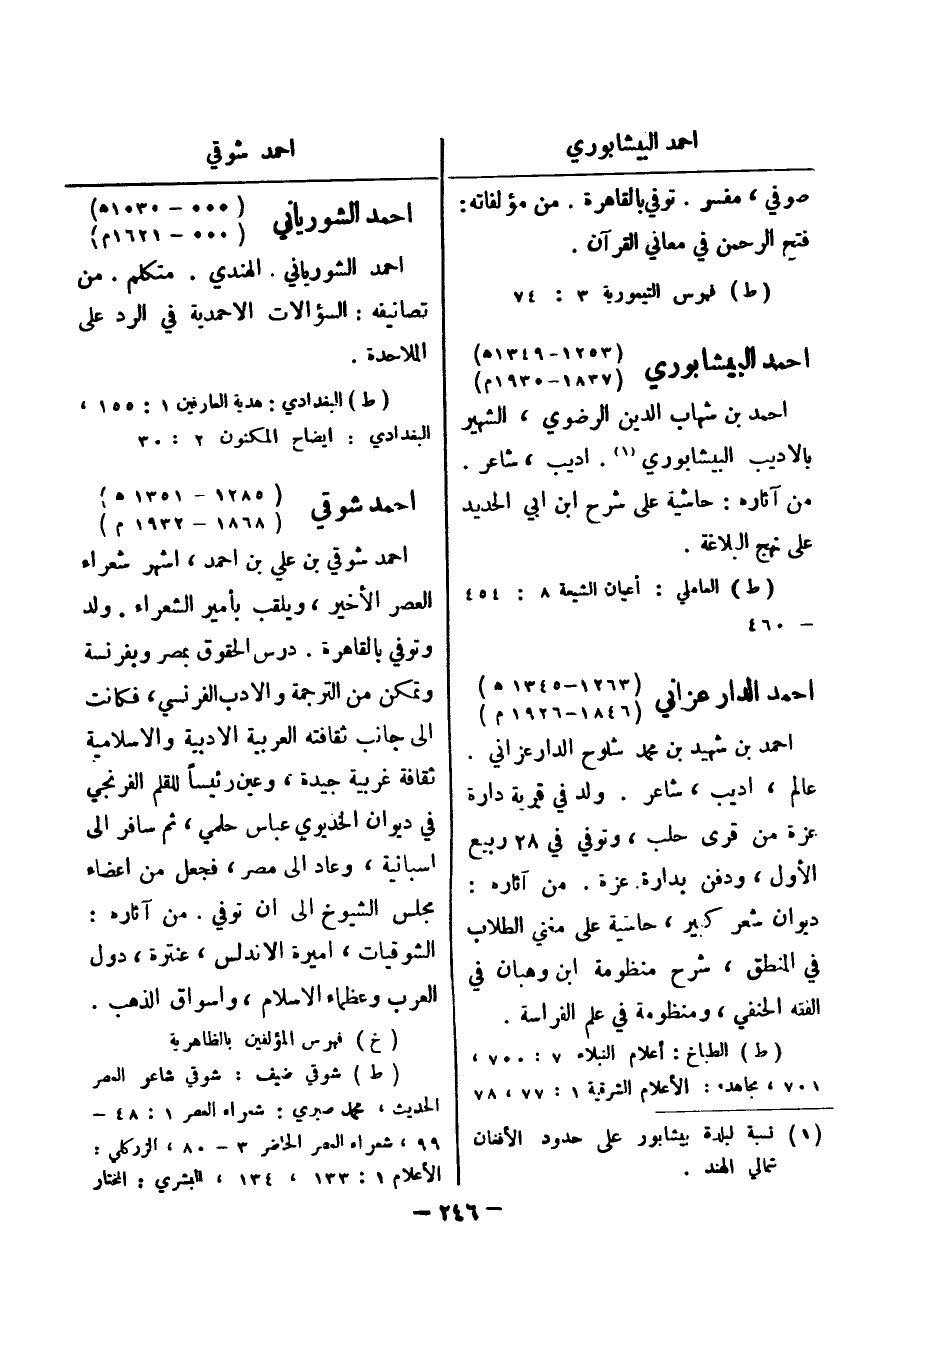 احمد البيشابوري
صوفي ، مفسر . توفي بالقاهرة . من مؤلفاته :
فتح الرحمن في معاني القرآن .
(ط) فهرس التيمورية ٣ : ٧٤
احمد البيشابوري (١٢٥٣-١٣٤٩ه)
(١٨٣٧-١٩٣٠م)
احمد بن شهاب الدين الرضوي ، الشهير
بالاديب البيشابوري (١) . اديب ، شاعر .
من آثاره : حاشية على شرح ابن ابي الحديد
على نهج البلاغة .
(ط) العاملي : أعيان الشيعة ٨ : ٤٥٤
– ٤٦٠
احمد الدارعزاني (١٢٦٣-١٣٤٥ ه)
(١٨٤٦-١٩٢٦ م)
احمد بن شهيد بن محمد شلوح الدارعزاني .
عالم ، اديب ، شاعر . ولد في قرية دارة
عزة من قرى حلب ، وتوفي في ٢٨ ربيع
الأول ، ودفن بدارة عزة . من آثاره :
ديوان شعر كبير ، حاشية على مغني الطلاب
في المنطق ، شرح منظومة ابن وهبان في
الفقه الحنفي ، ومنظومة في علم الفراسة .
(ط) الطباخ : أعلام النبلاء ٧ : ٧٠٠ ،
٧٠١ ، مجاهد : الأعلام الشرقية ١ : ٧٧ ، ٧٨
(١) نسبة لبلدة بيشابور على حدود الأفغان
شمالي الهند .
احمد شوقي
احمد الشورياني (٠٠٠ – ١٠٣٠ه)
(٠٠٠ – ١٦٢١م)
احمد الشورياني . الهندي . متكلم . من
تصانيفه : السؤالات الاحمدية في الرد على
الملاحدة .
(ط) البغدادي : هدية العارفين ١ : ١٥٥ ،
البغدادي : ايضاح المكنون ٢ : ٣٠
احمد شوقي (١٢٨٥ – ١٣٥١ ه)
(١٨٦٨ – ١٩٣٢ م)
احمد شوقي بن علي بن احمد ، اشهر شعراء
العصر الأخير ، ويلقب بأمير الشعراء . ولد
وتوفي بالقاهرة . درس الحقوق بمصر وبفرنسة
وتمكن من الترجمة والادب الفرنسي ، فكانت
الى جانب ثقافته العربية الادبية والاسلامية
ثقافة غربية جيدة ، وعين رئيساً للقلم الفرنجي
في ديوان الخديوي عباس حلمي ، ثم سافر الى
اسبانية ، وعاد الى مصر ، فجعل من اعضاء
مجلس الشيوخ الى ان توفي . من آثاره :
الشوقيات ، اميرة الاندلس ، عنترة ، دول
العرب وعظماء الاسلام ، واسواق الذهب .
(خ) فهرس المؤلفين بالظاهرية
(ط) شوقي ضيف : شوقي شاعر العصر
الحديث ، محمد صبري : شعراء العصر ١ : ٤٨ –
٩٩ ، شعراء العصر الحاضر ٣ – ٨٠ ، الزركلي :
الأعلام ١ : ١٣٣ ، ١٣٤ ، البشري : المختار
– ٢٤٦ –